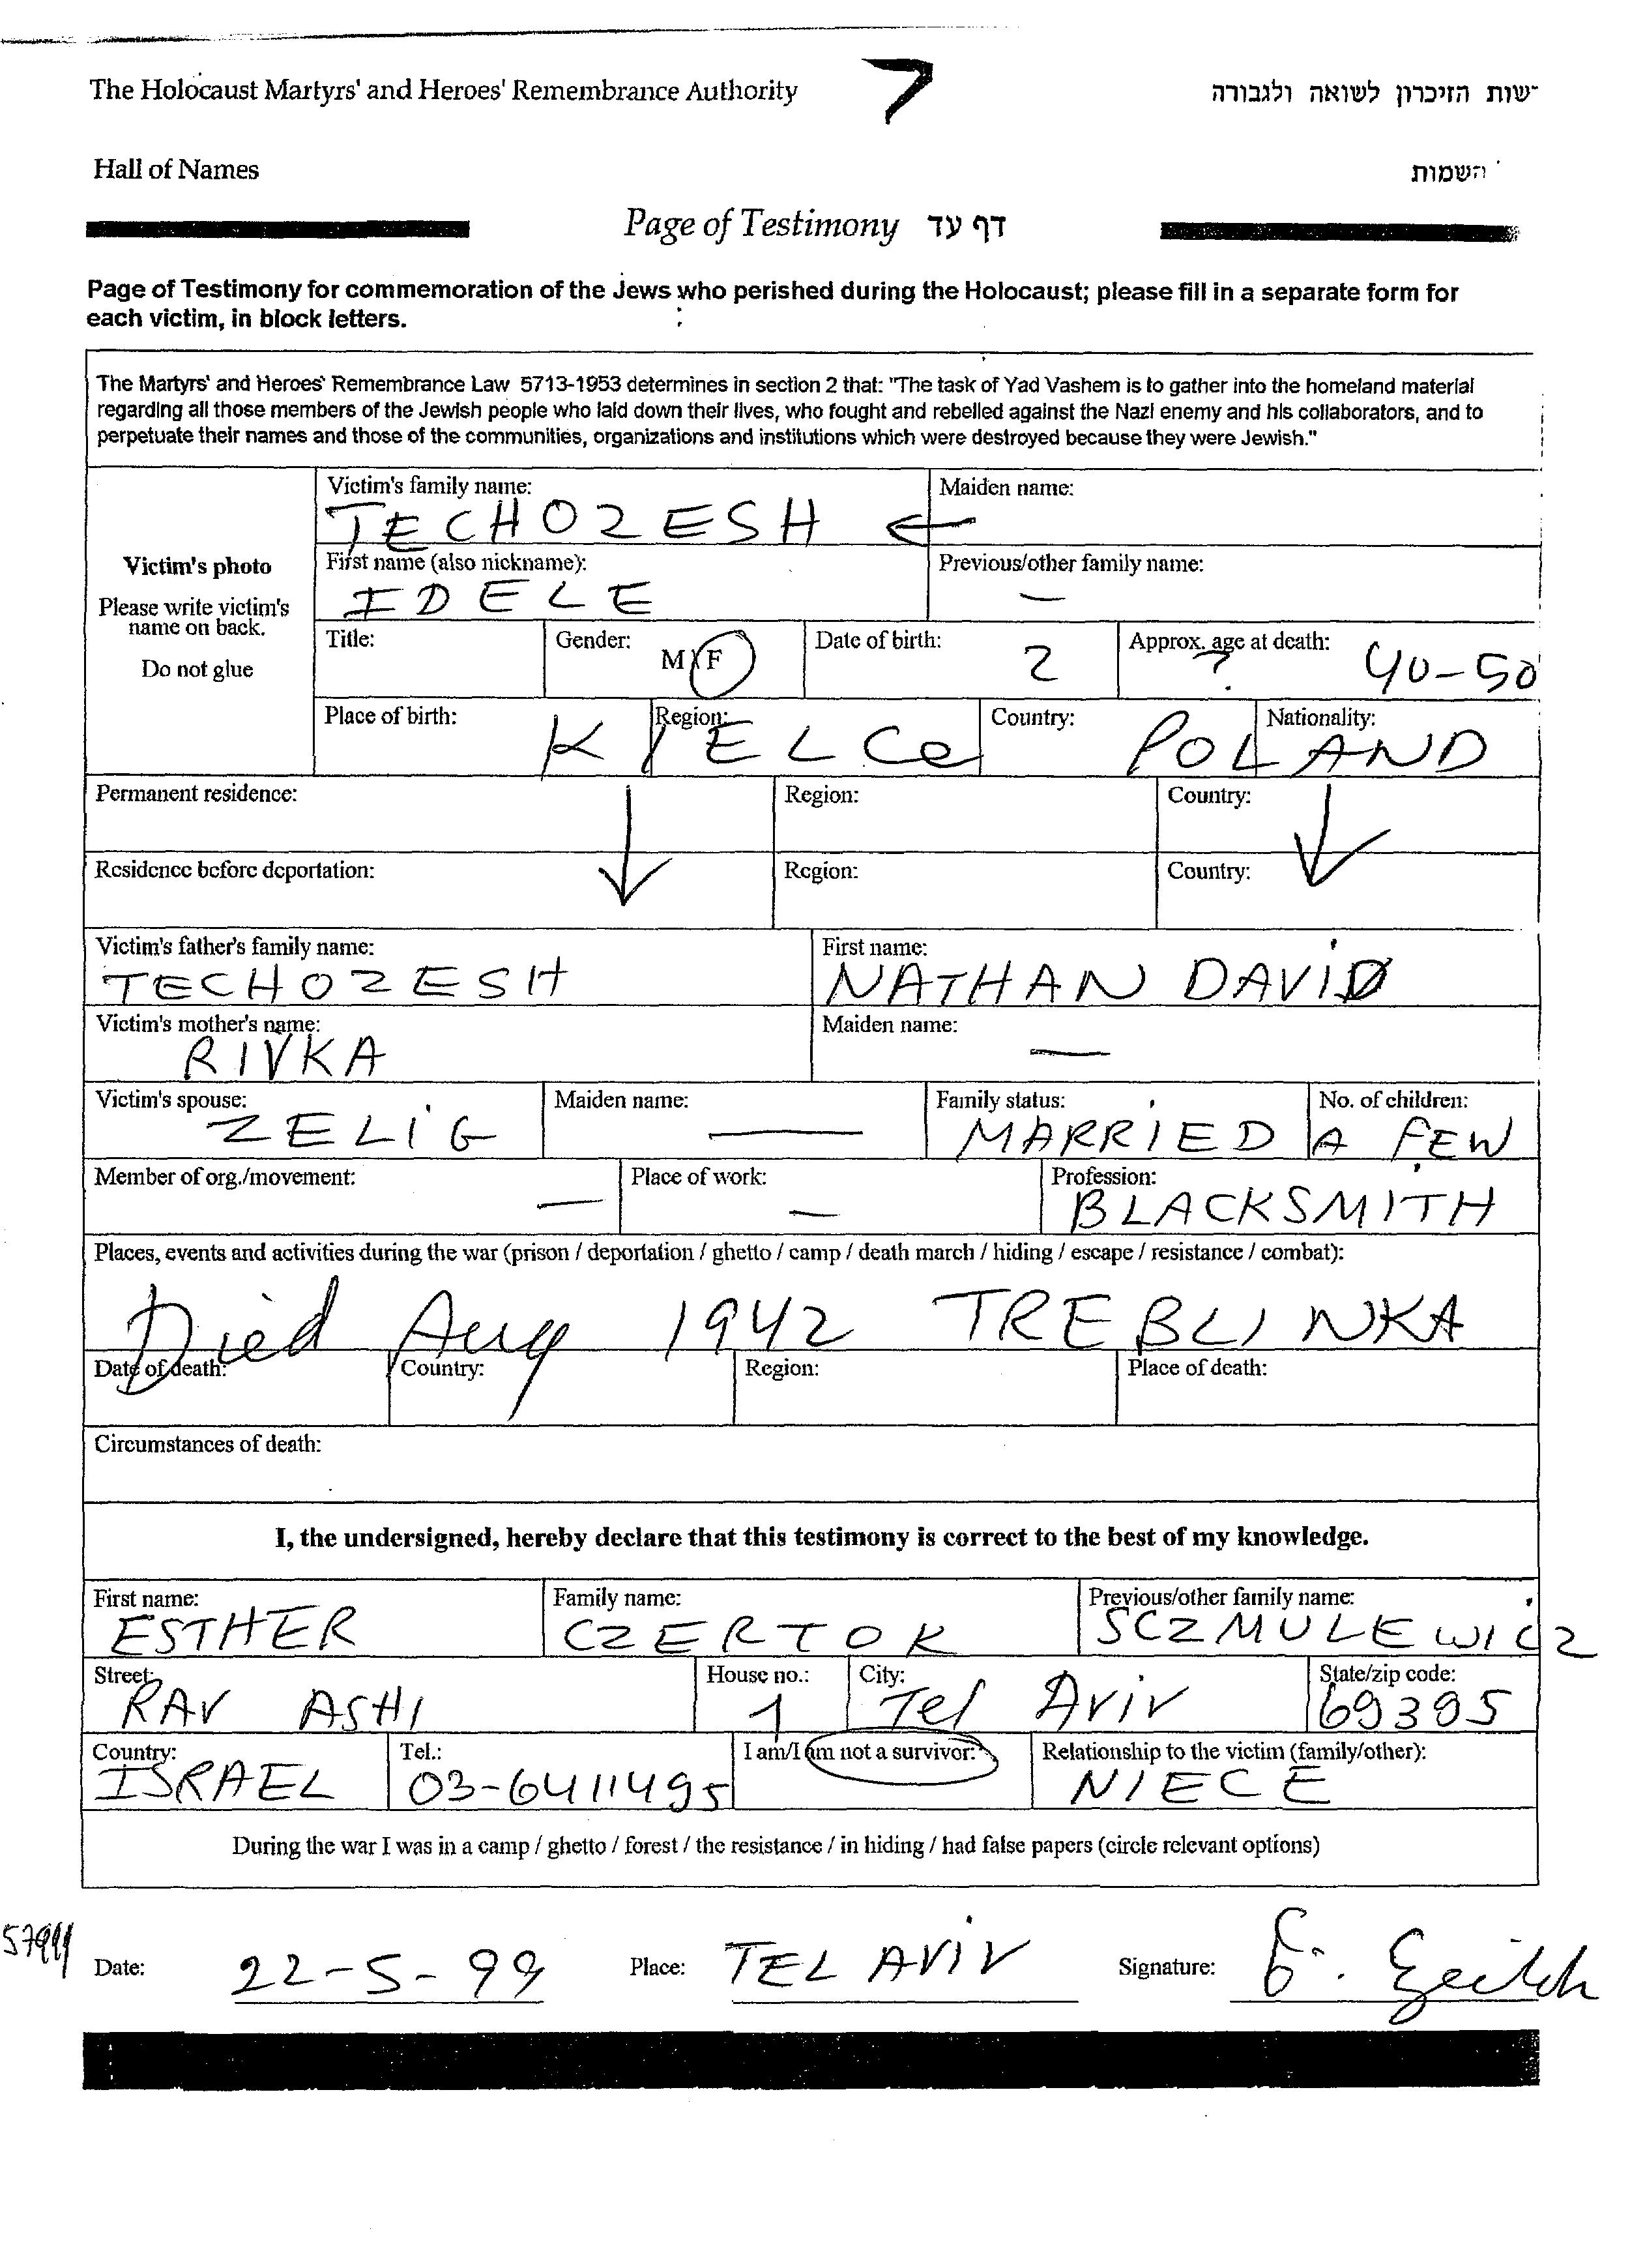 The Holocaust Martyrs' and Heroes' Remembrance Authority 7 שות הזיכרון לשואה ולגבורה
Hall of Names השמות
Page of Testimony דף עד
Page of Testimony for commemoration of the Jews who perished during the Holocaust; please fill in a separate form for
each victim, in block letters.
The Martyrs' and Heroes' Remembrance Law 5713-1953 determines in section 2 that: "The task of Yad Vashem is to gather into the homeland material
regarding all those members of the Jewish people who laid down their lives, who fought and rebelled against the Nazi enemy and his collaborators, and to
perpetuate their names and those of the communities, organizations and institutions which were destroyed because they were Jewish."
Victim's photo
Please write victim's
name on back.
Do not glue
Victim's family name: Maiden name:
TECHOZESH ←
First name (also nickname): Previous/other family name:
IDELE —
Title: Gender: M/F Date of birth: ? Approx. age at death: ? 40-50
Place of birth: Region: Country: Nationality:
KIELCe POLAND
Permanent residence: Region: Country:
Residence before deportation: Region: Country:
Victim's father's family name: First name:
TECHOZESH NATHAN DAVID
Victim's mother's name: Maiden name:
RIVKA —
Victim's spouse: Maiden name: Family status: No. of children:
ZELIG — MARRIED A FEW
Member of org./movement: Place of work: Profession:
— — BLACKSMITH
Places, events and activities during the war (prison / deportation / ghetto / camp / death march / hiding / escape / resistance / combat):
Died Aug 1942 TREBLINKA
Date of death: Country: Region: Place of death:
Circumstances of death:
I, the undersigned, hereby declare that this testimony is correct to the best of my knowledge.
First name: Family name: Previous/other family name:
ESTHER CZERTOK SCZMULEWICZ
Street: House no.: City: State/zip code:
RAV ASHI 1 Tel Aviv 69395
Country: Tel.: I am/I am not a survivor: Relationship to the victim (family/other):
ISRAEL 03-6411495 NIECE
During the war I was in a camp / ghetto / forest / the resistance / in hiding / had false papers (circle relevant options)
Date: 22-5-99 Place: TEL AVIV Signature: